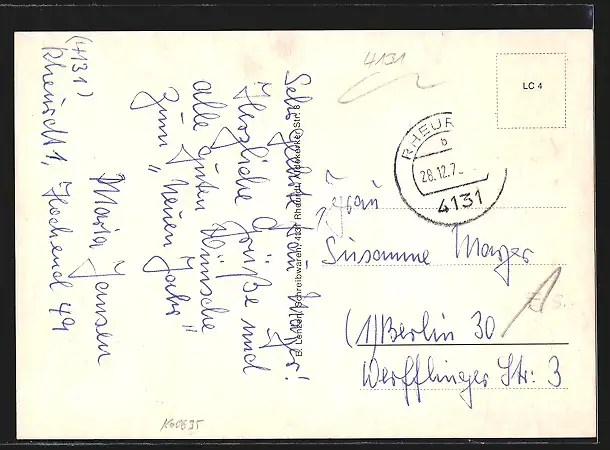 Sehr geehrte Frau Mayer!
Herzliche Grüße und
alle guten Wünsche
zum "neuen Jahr"
Maria Jansen
(4131)
Rheurdt 1, Hochend 49
4131
LC 4
RHEUR
b
28.12.7
4131
Frau
Susanne Mayer
(1) Berlin 30
Werfflinger Str: 3
B. Lenzen, Schreibwaren, 4131 Rheurdt, Aldekerker Str. 8